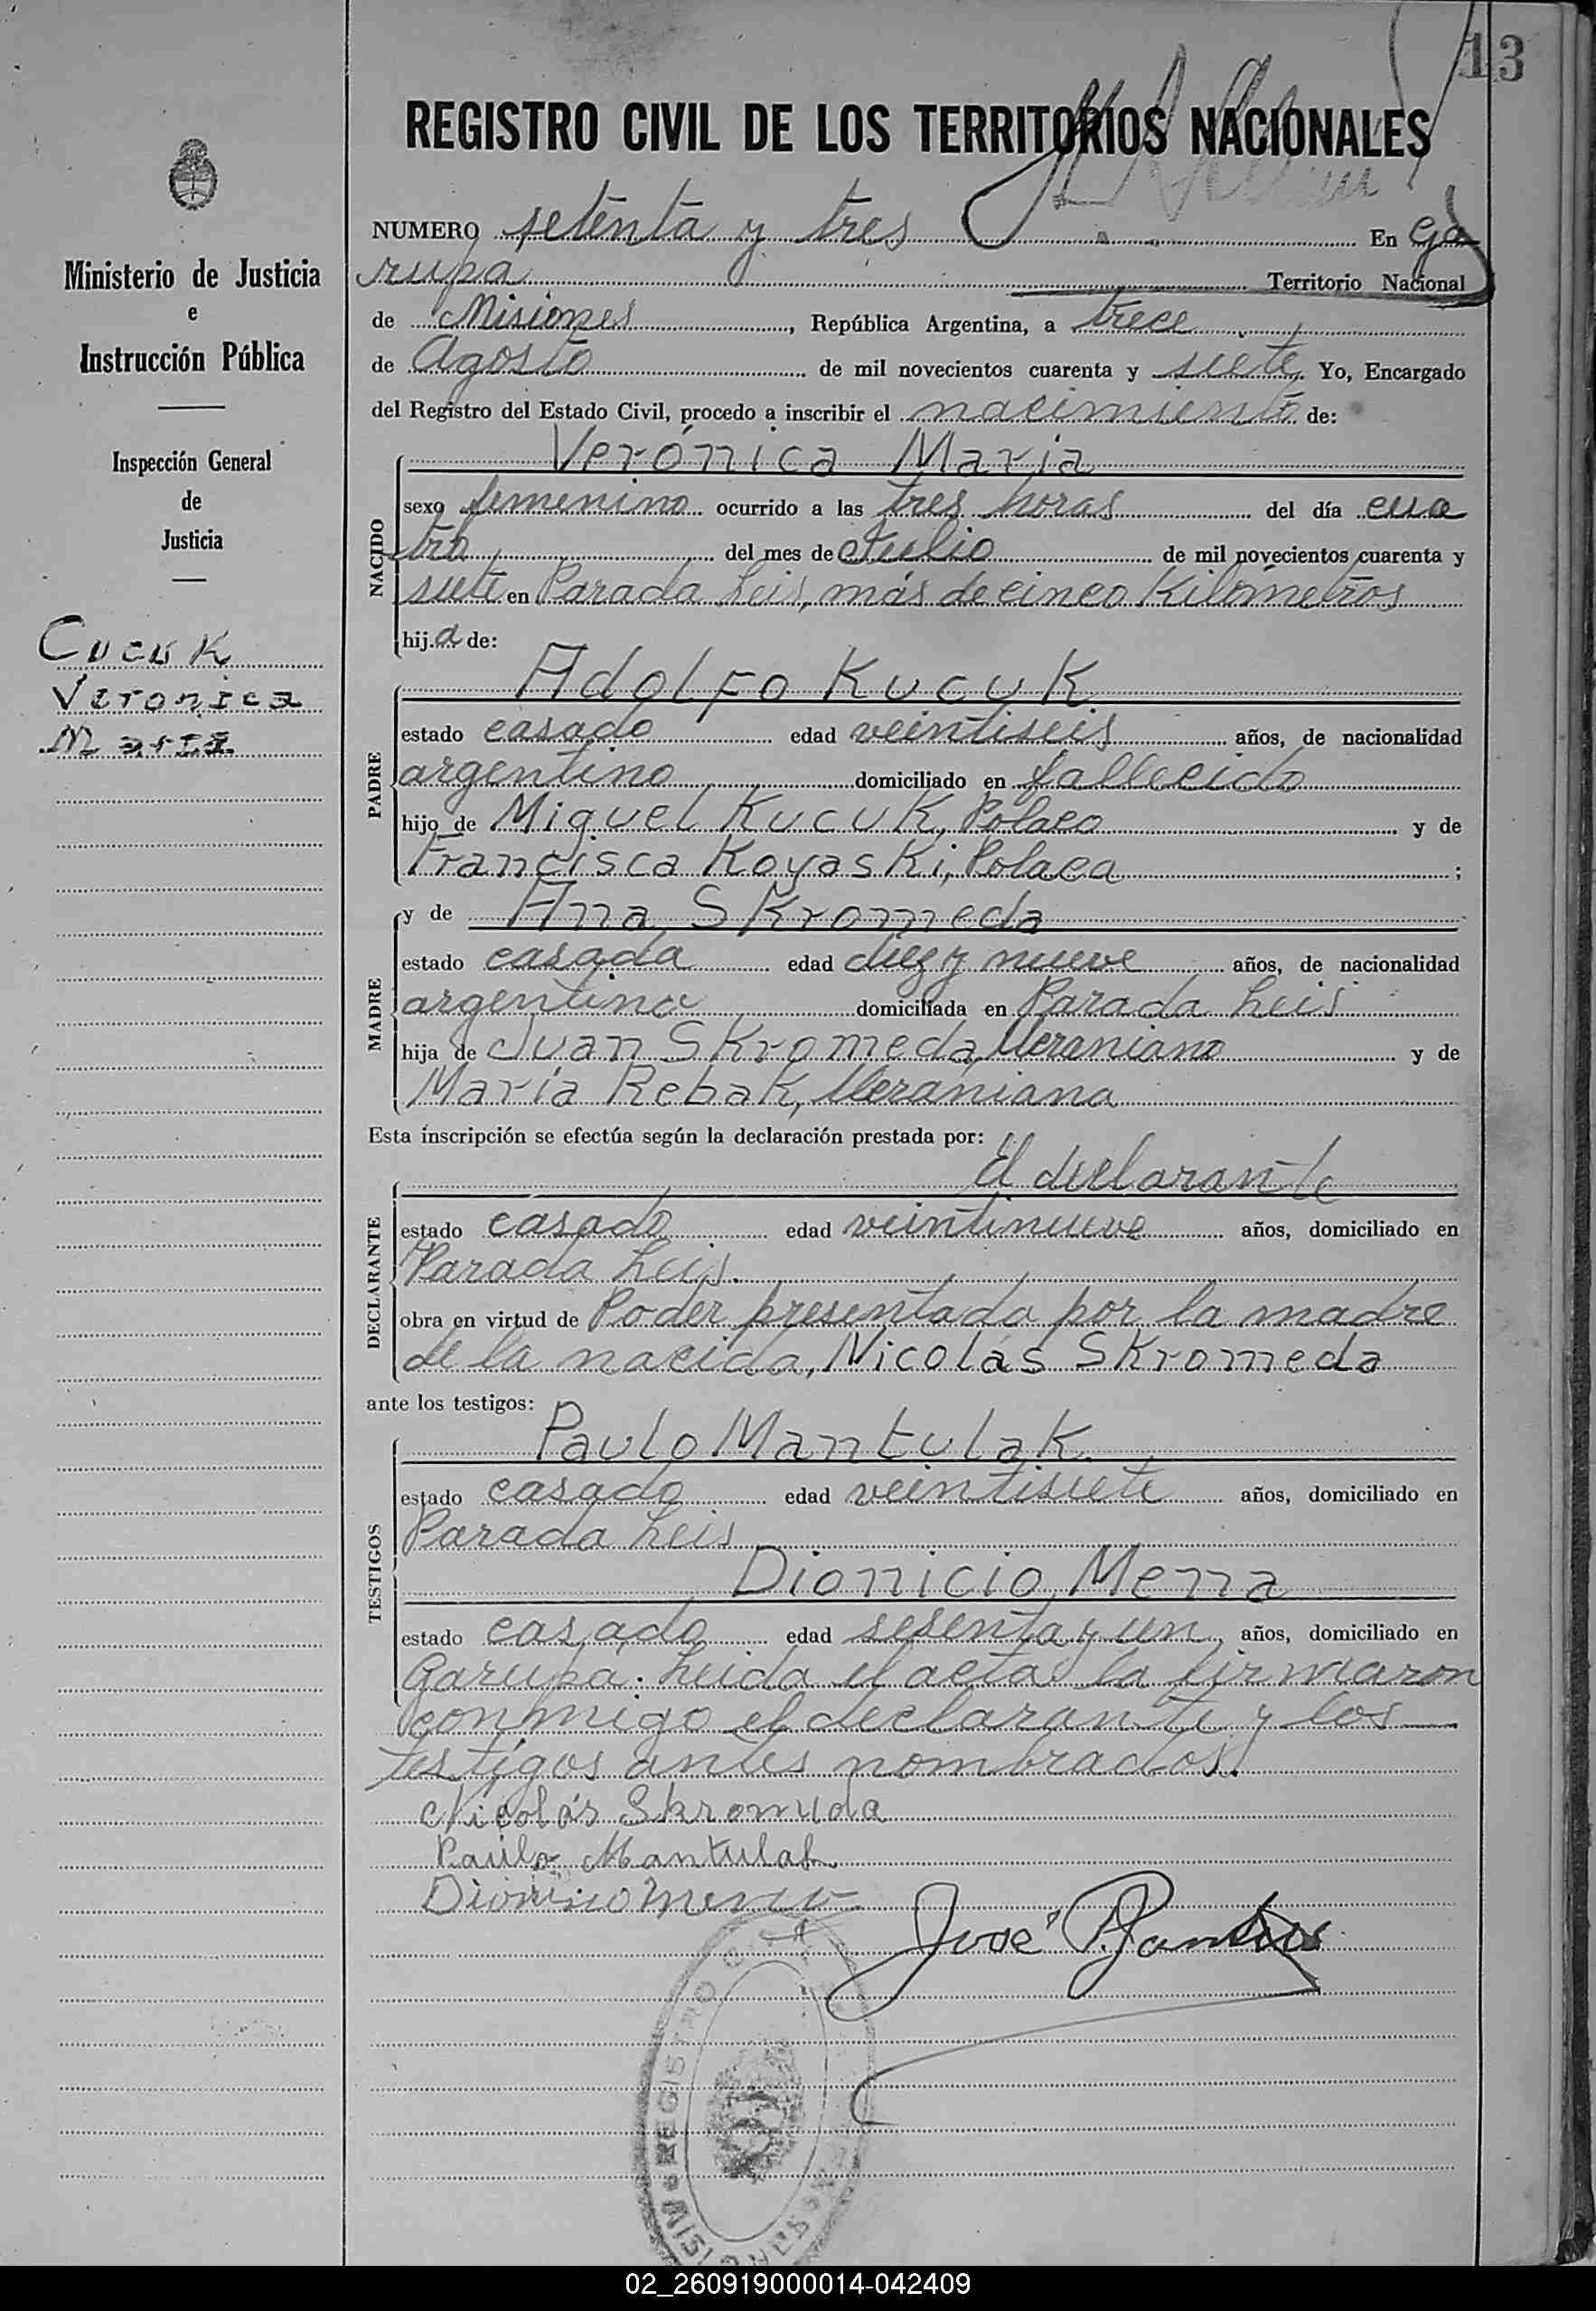 13
REGISTRO CIVIL DE LOS TERRITORIOS NACIONALES
NUMERO setenta y tres En Ga
rupá Territorio Nacional
de Misiones, República Argentina, a trece
de Agosto de mil novecientos cuarenta y siete, Yo, Encargado
del Registro del Estado Civil, procedo a inscribir el nacimiento de:
Ministerio de Justicia
e
Instrucción Pública
Inspección General
de
Justicia
Cucuk
Veronica
Maria
NACIDO
Verónica María
sexo femenino ocurrido a las tres horas del día cua
tro del mes de Julio de mil novecientos cuarenta y
siete en Parada Leis, más de cinco Kilómetros
hija de:
PADRE
Adolfo Kucuk
estado casado edad veintiseis años, de nacionalidad
argentino domiciliado en fallecido
hijo de Miguel Kucuk, Polaco y de
Francisca Koyaski, Polaca ;
MADRE
y de Ana Skromeda
estado casada edad diez y nueve años, de nacionalidad
argentina domiciliada en Parada Leis
hija de Juan Skromeda, Ucraniano y de
María Rebak, Ucraniana
Esta inscripción se efectúa según la declaración prestada por:
DECLARANTE
El declarante
estado casado edad veintinueve años, domiciliado en
Parada Leis.
obra en virtud de Poder presentado por la madre
de la nacida, Nicolás Skromeda
ante los testigos:
TESTIGOS
Paulo Mantulak
estado casado edad veintisiete años, domiciliado en
Parada Leis
Dionicio Menna
estado casado edad sesenta y un años, domiciliado en
Garupá. Leida el acta la firmaron
conmigo el declarante y los
testigos antes nombrados.
Nicolás Skromeda
Paulo Mantulak
Dionisio
José
REGISTRO
MISIONES
02_260919000014-042409